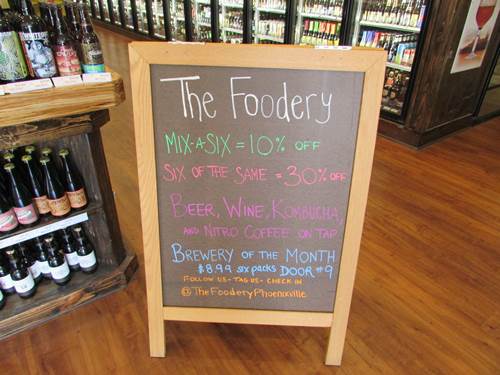 The Foodery
MIX-A-SIX = 10% OFF
SIX OF THE SAME = 30% OFF
BEER, WINE, KOMBUCHA,
AND NITRO COFFEE ON TAP
BREWERY OF THE MONTH
$8.99 six packs DOOR #9
FOLLOW US - TAG US - CHECK IN
@TheFooderyPhoenixville